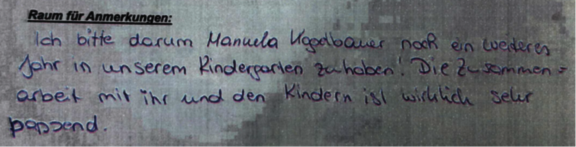 Raum für Anmerkungen:
Ich bitte darum Manuela noch ein weiteres
Jahr in unserem Kindergarten zu haben! Die Zusammen=
arbeit mit ihr und den Kindern ist wirklich sehr
passend.